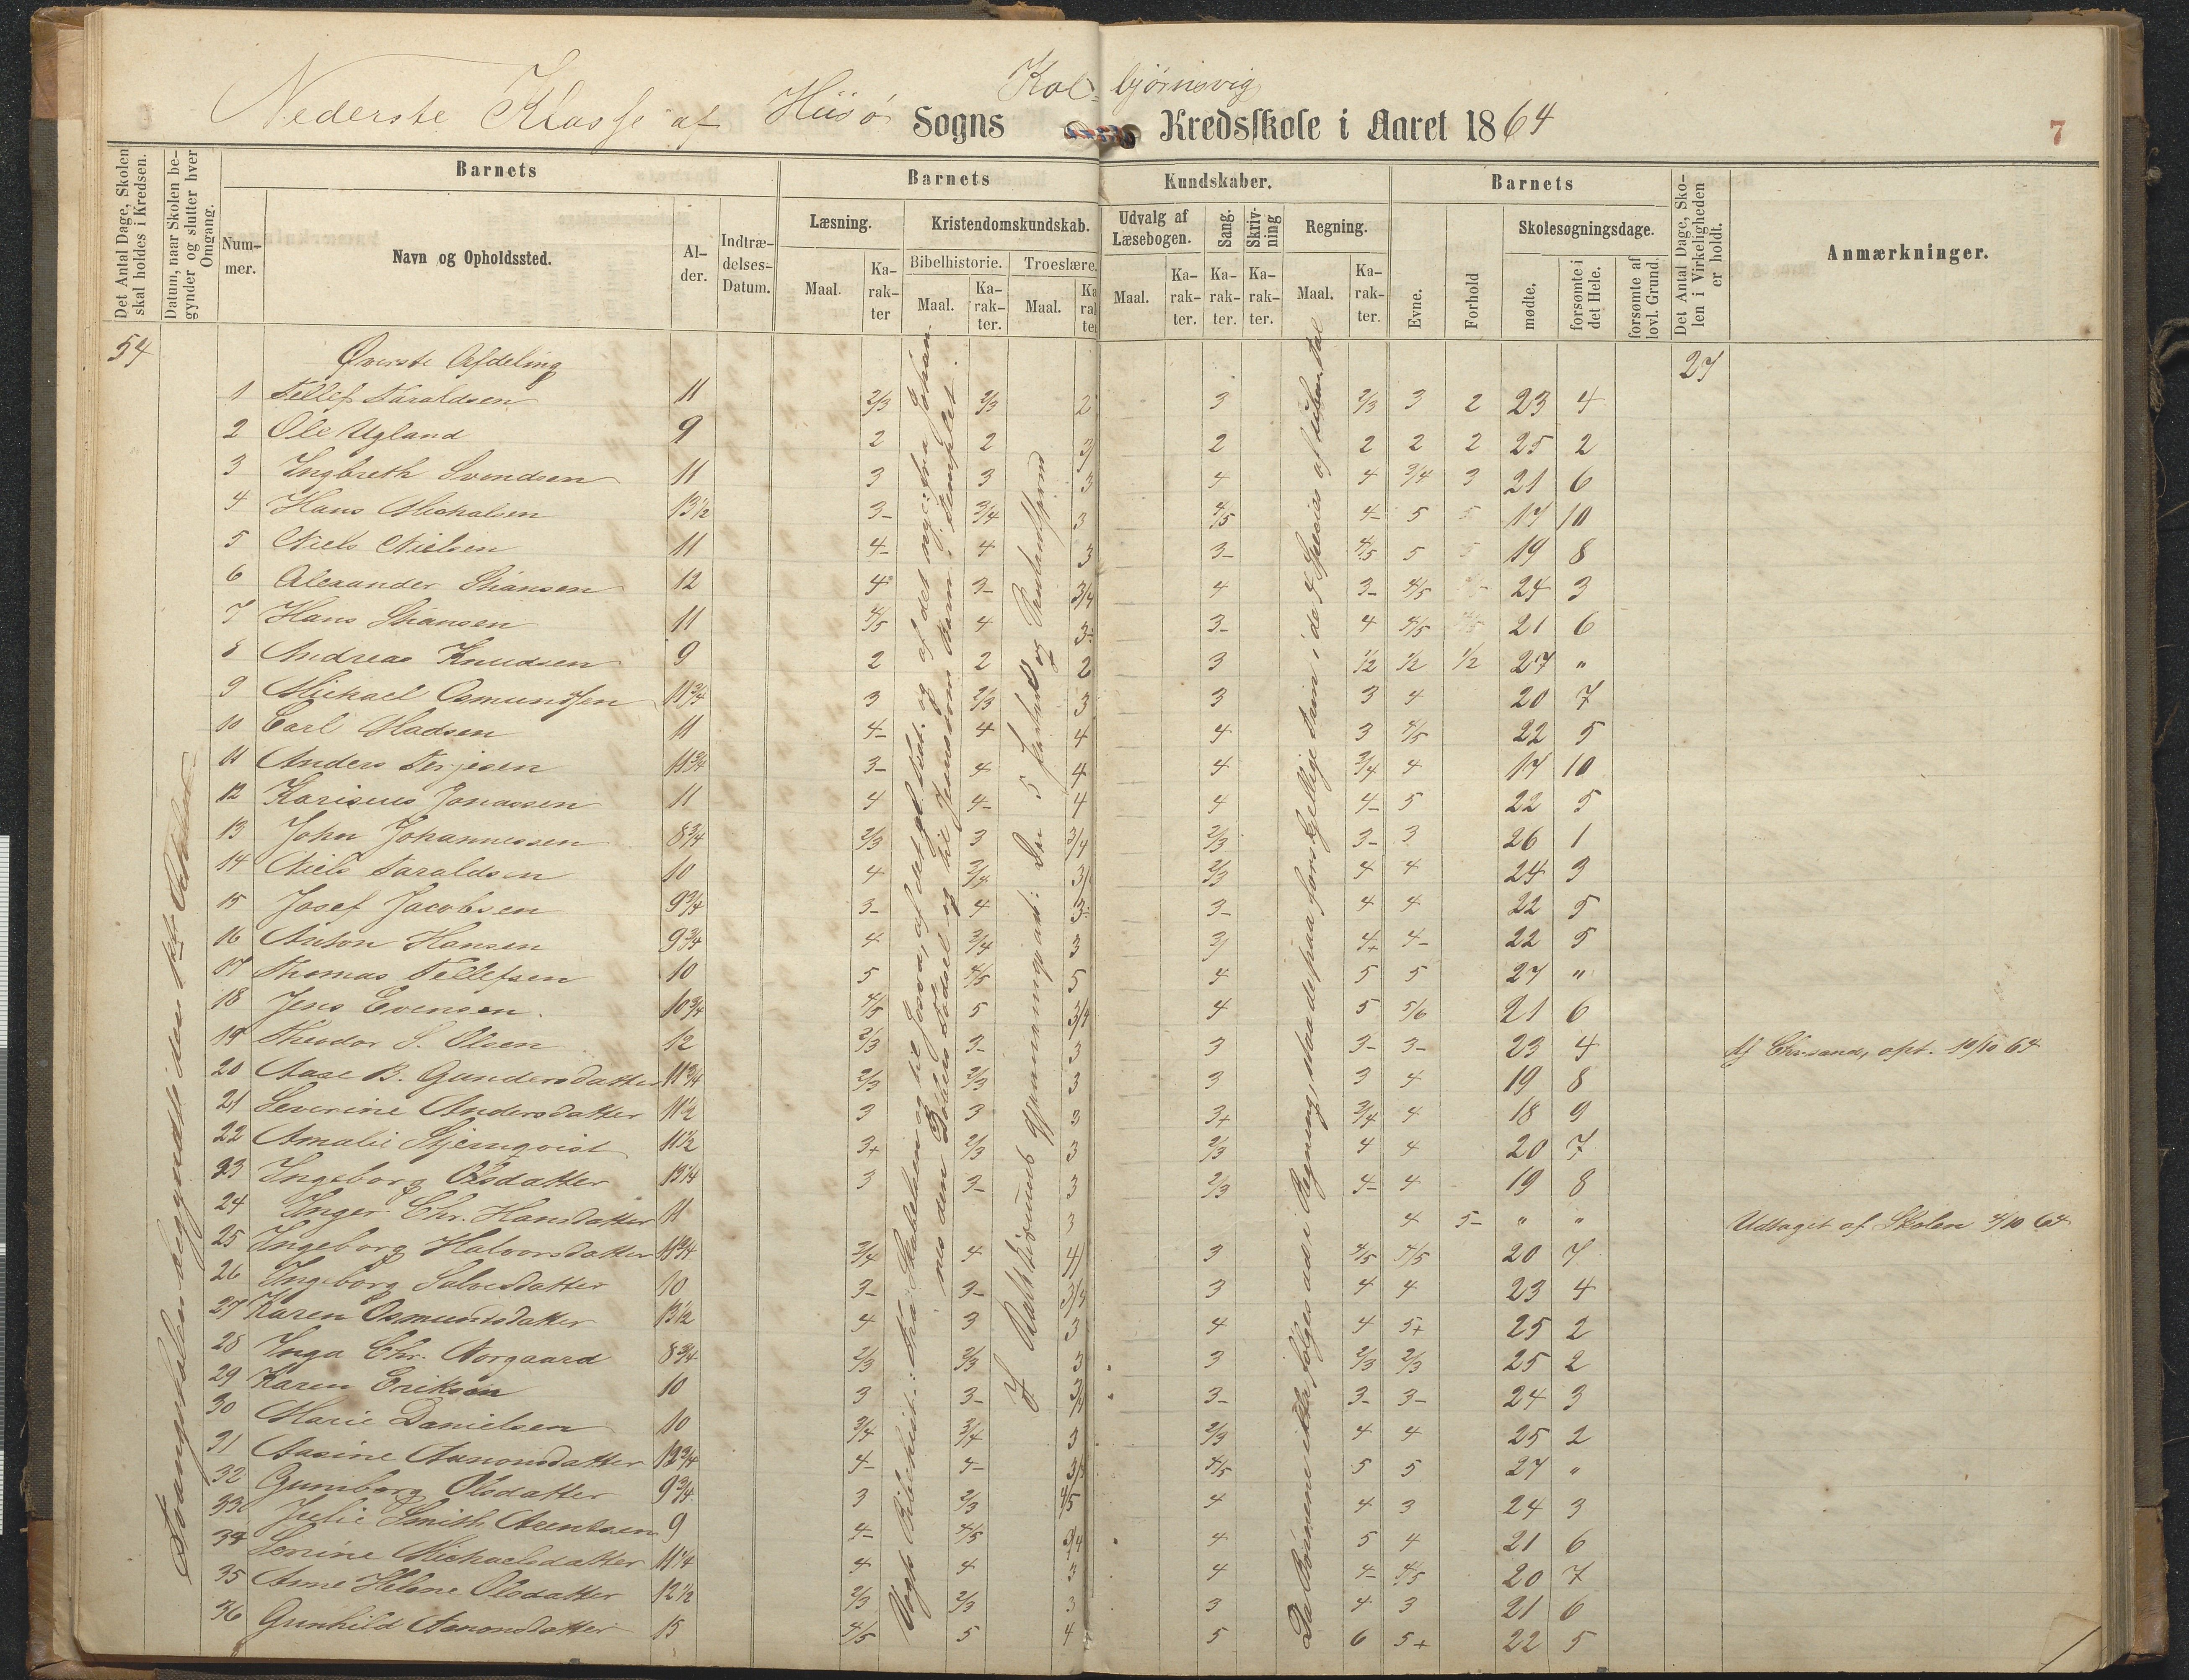 Nederste Klasse af Hisø Sogns Kolbjørnsvig Kredsskole i Aaret 1864
7
Det Antal Dage, Skolen skal holdes i Kredsen.
Datum, naar Skolen begynder og slutter hver Omgang.
Barnets
Barnets
Kundskaber.
Barnets
Det Antal Dage, Skolen i Virkeligheden er holdt.
Anmærkninger.
Nummer.
Navn og Opholdssted.
Alder.
Indtrædelses-Datum.
Læsning.
Kristendomskundskab.
Udvalg af Læsebogen.
Sang.
Skrivning
Regning.
Evne.
Forhold
Skolesøgningsdage.
Bibelhistorie.
Troeslære.
Maal.
Karakter
Maal.
Karakter.
Maal.
Karakter
Maal.
Karakter.
Karakter.
Karakter.
Maal.
Karakter.
mødte.
forsømte i det Hele.
forsømte af lovl. Grund.
54
Øverste Afdeling
27
1 Tellef Taraldsen 11 2/3 2/3 2 3 2/3 3 2 23 4
2 Ole Ugland 9 2 2 3/ 2 2 2 2 25 2
3 Ingbreth Svendsen 11 3 3 3 4 4 3/4 3 21 6
4 Hans Michalsen 13½ 3- 3/4 3 4/5 4- 5 5 17 10
5 Niels Nielsen 11 4- 4 3 3- 4/5 5 5 19 8
6 Alexander Shansen 12 4 3- 3/4 4 3- 4/5 24 3
7 Hans Shansen 11 4/5 4 3- 3- 4 4/5 4/5 21 6
8 Andreas Knudsen 9 2 2 2 3 1/2 1/2 1/2 27 "
9 Michael Osmundsen 11¾ 3 2/3 3 3 3 4 20 7
10 Carl Madsen 11 4- 4 4 4 3 4/5 22 5
11 Anders Terjesen 11¾ 3- 4 4 4 3/4 4 17 10
12 Karinus Jonassen 11 4 4- 4 4 4- 5 22 5
13 John Johannessen 8¾ 2/3 3 3/4 2/3 3- 3 26 1
14 Niels Taraldsen 10 4 3/4 3/ 2/3 4 4 24 3
15 Josef Jacobsen 9¾ 3- 4 3- 3- 4 4 22 5
16 Anton Hansen 9¾ 4 3/4 3 3/ 4+ 4- 22 5
17 Thomas Tellefsen 10 5 4/5 5 4 5 5 27 "
18 Jens Evensen. 10¾ 4/5 5 3/4 4 5 5/6 21 6
19 Theodor S. Olsen 12 2/3 3- 3 3 3- 3- 23 4 Chr.sand, opt. 10/10 64
20 Aase B. Gundersdatter 11¾ 2/3 2/3 3 3 3 4 19 8
21 Severine Andersdatter 11½ 3 3 3 3+ 3/4 4 18 9
22 Amalie Stjernqvist 11½ 3+ 2/3 3 2/3 4 4 20 7
23 Ingeborg Olsdatter 13¼ 3 3- 3 2/3 4- 4 19 8
24 Inger Chr. Hansdatter 11 3 4 5- " " Udtaget af Skolen 4/10 64
25 Ingeborg Halvorsdatter 11¾ 3/4 4 4/ 3 4/5 4/5 20 7
26 Ingeborg Salvesdatter 10 3- 3- 3/4 3 4 4 23 4
27 Karen Osmundsdatter 13½ 4 3 3 4 4 5+ 25 2
28 Inga Chr. Norgaard 8¾ 2/3 2/3 3 3 2/3 2/3 25 2
29 Karen Eriksen 10 3 3- 3/4 3- 3- 3- 24 3
30 Marie Danielsen 10 3/4 3/4 3 2/3 4 4 25 2
31 Aasine Aanonsdatter 12¾ 4- 4- 3/4 4/5 5 5 27 "
32 Gunborg Olsdatter 9¾ 3 2/3 4/5 4 4 3 24 3
33 Julie Smith Arentsen 9 4- 4/5 3/4 4 5 4 21 6
34 Serine Michaelsdatter 11¼ 4 4 3 4 4- 4/5 20 7
35 Anne Helene Olsdatter 12½ 2/3 2/3 3 3 4 3 21 6
36 Gunhild Aanonsdatter 15 4/5 5 4 5 6 5+ 22 5
Omgangsskolen begyndte den 1st October
Vogts Bibelhist.: Fra Skabelsen og til Josva, af det gl. Test. og af det nye: fra Johannes den Døbers Fødsel og til Jesus som Barn i Templet.
I Katekismus gjennemgaaet: De 5 Parter
Da Børnene ikke følges ad i Regning, staa de paa forskjellige Trin i de 4 Species af ubenævnte Tal